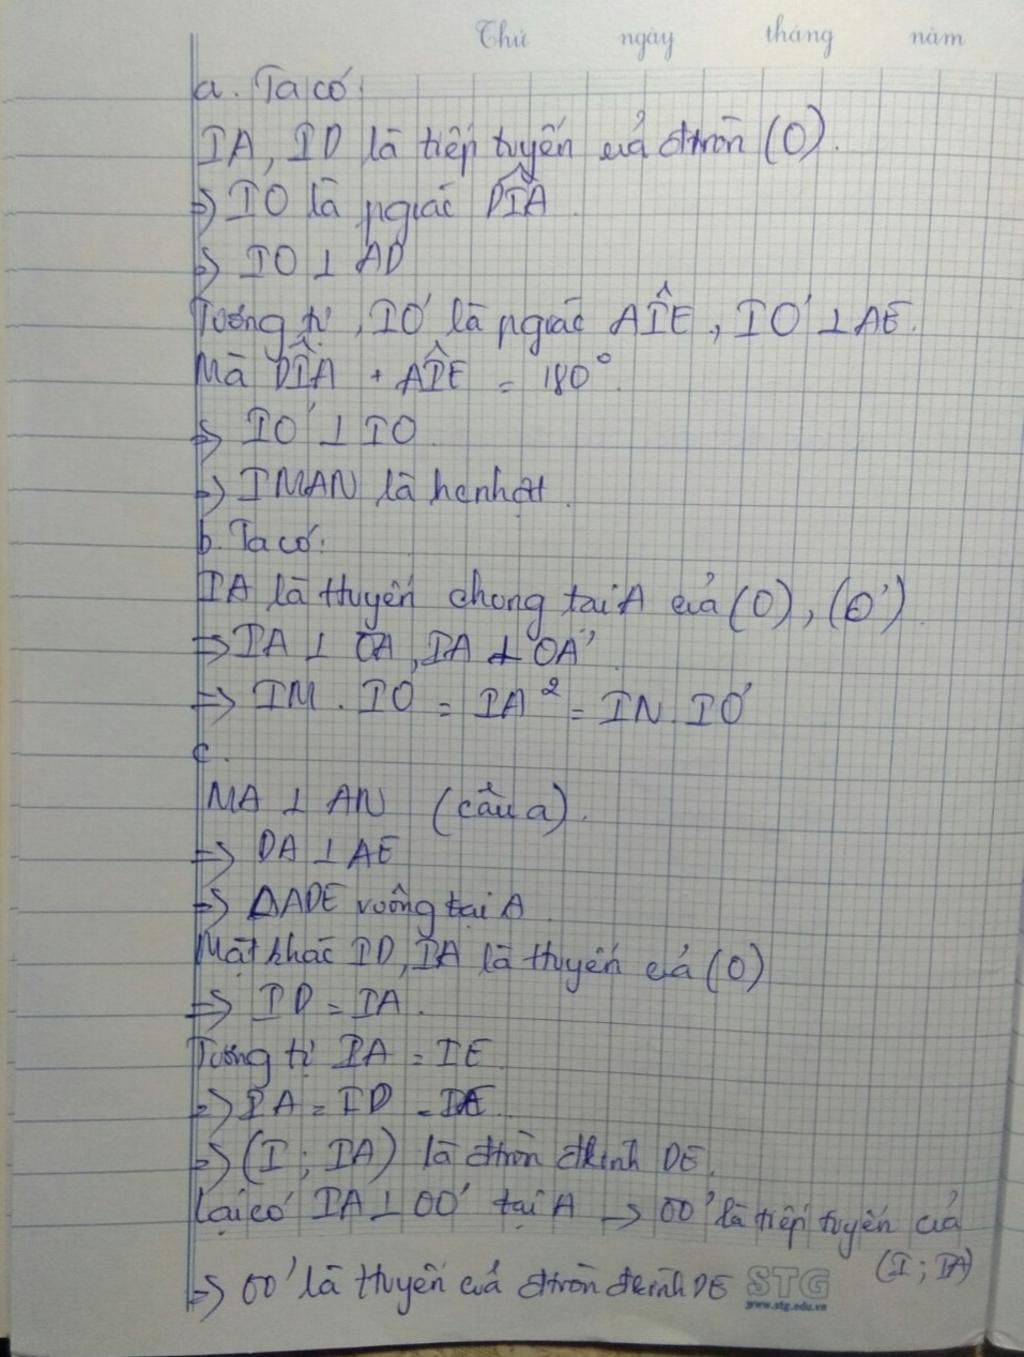 Thứ ngày tháng năm
a. Ta có:
IA, ID là tiếp tuyến của đtròn (O).
=> IO là pgiác DÎA
=> IO ⊥ AD
Tương tự, IO' là pgiác AÎE, IO' ⊥ AE.
Mà DÎA + AÎE = 180°.
=> IO' ⊥ IO
=> IMAN là hcnhật.
b. Ta có:
IA là ttuyến chung tại A của (O), (O')
=> IA ⊥ OA, IA ⊥ OA'.
=> IM . IO = IA² = IN. IO'
c.
MA ⊥ AN (câu a).
=> DA ⊥ AE
=> ΔADE vuông tại A
Mặt khác ID, IA là ttuyến của (O)
=> ID = IA.
Tương tự IA = IE
=> IA = ID = IE.
=> (I; IA) là đtròn đkính DE.
Lại có IA ⊥ OO' tại A -> OO' là tiếp tuyến của
(I; IA)
=> OO' là ttuyến của đtròn đkính DE
STG
www.stg.edu.vn